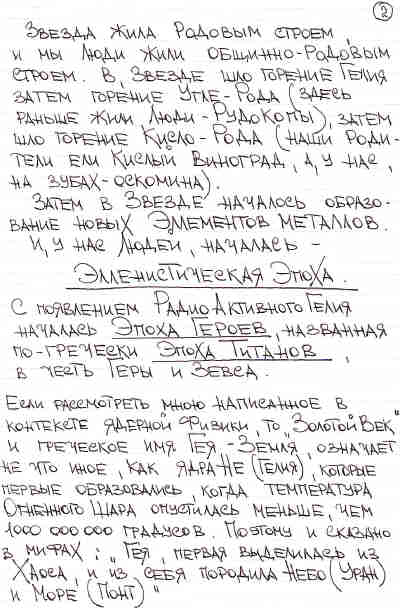 2
Звезда жила Родовым строем,
и мы люди жили общинно-родовым
строем. В Звезде шло горение Гелия
затем горение Угле-Рода (здесь
раньше жили люди-Рудокопы), затем
шло горение Кисло-Рода (наши роди-
тели ели кислый виноград, а, у нас,
на зубах-оскомина).
Затем в Звезде началось образо-
вание новых Эллементов металлов.
И, у нас людей, началась –
Эллинистическая Эпоха.
С появлением РадиоАктивного Гелия
началась Эпоха Героев, названная
по-гречески Эпоха Титанов,
в честь Геры и Зевса.
Если рассмотреть мною написанное в
контексте ядерной физики, то "Золотой Век"
и греческое имя Гея-Земля, означает
не что иное, как ядра Не (Гелия), которые
первые образовались, когда температура
Огненного Шара опустилась меньше, чем
1000 000 000 градусов. Поэтому и сказано
в мифах: "Гея, первая выделилась из
Хаоса, и из себя породила Небо (Уран)
и Море (Понт)"